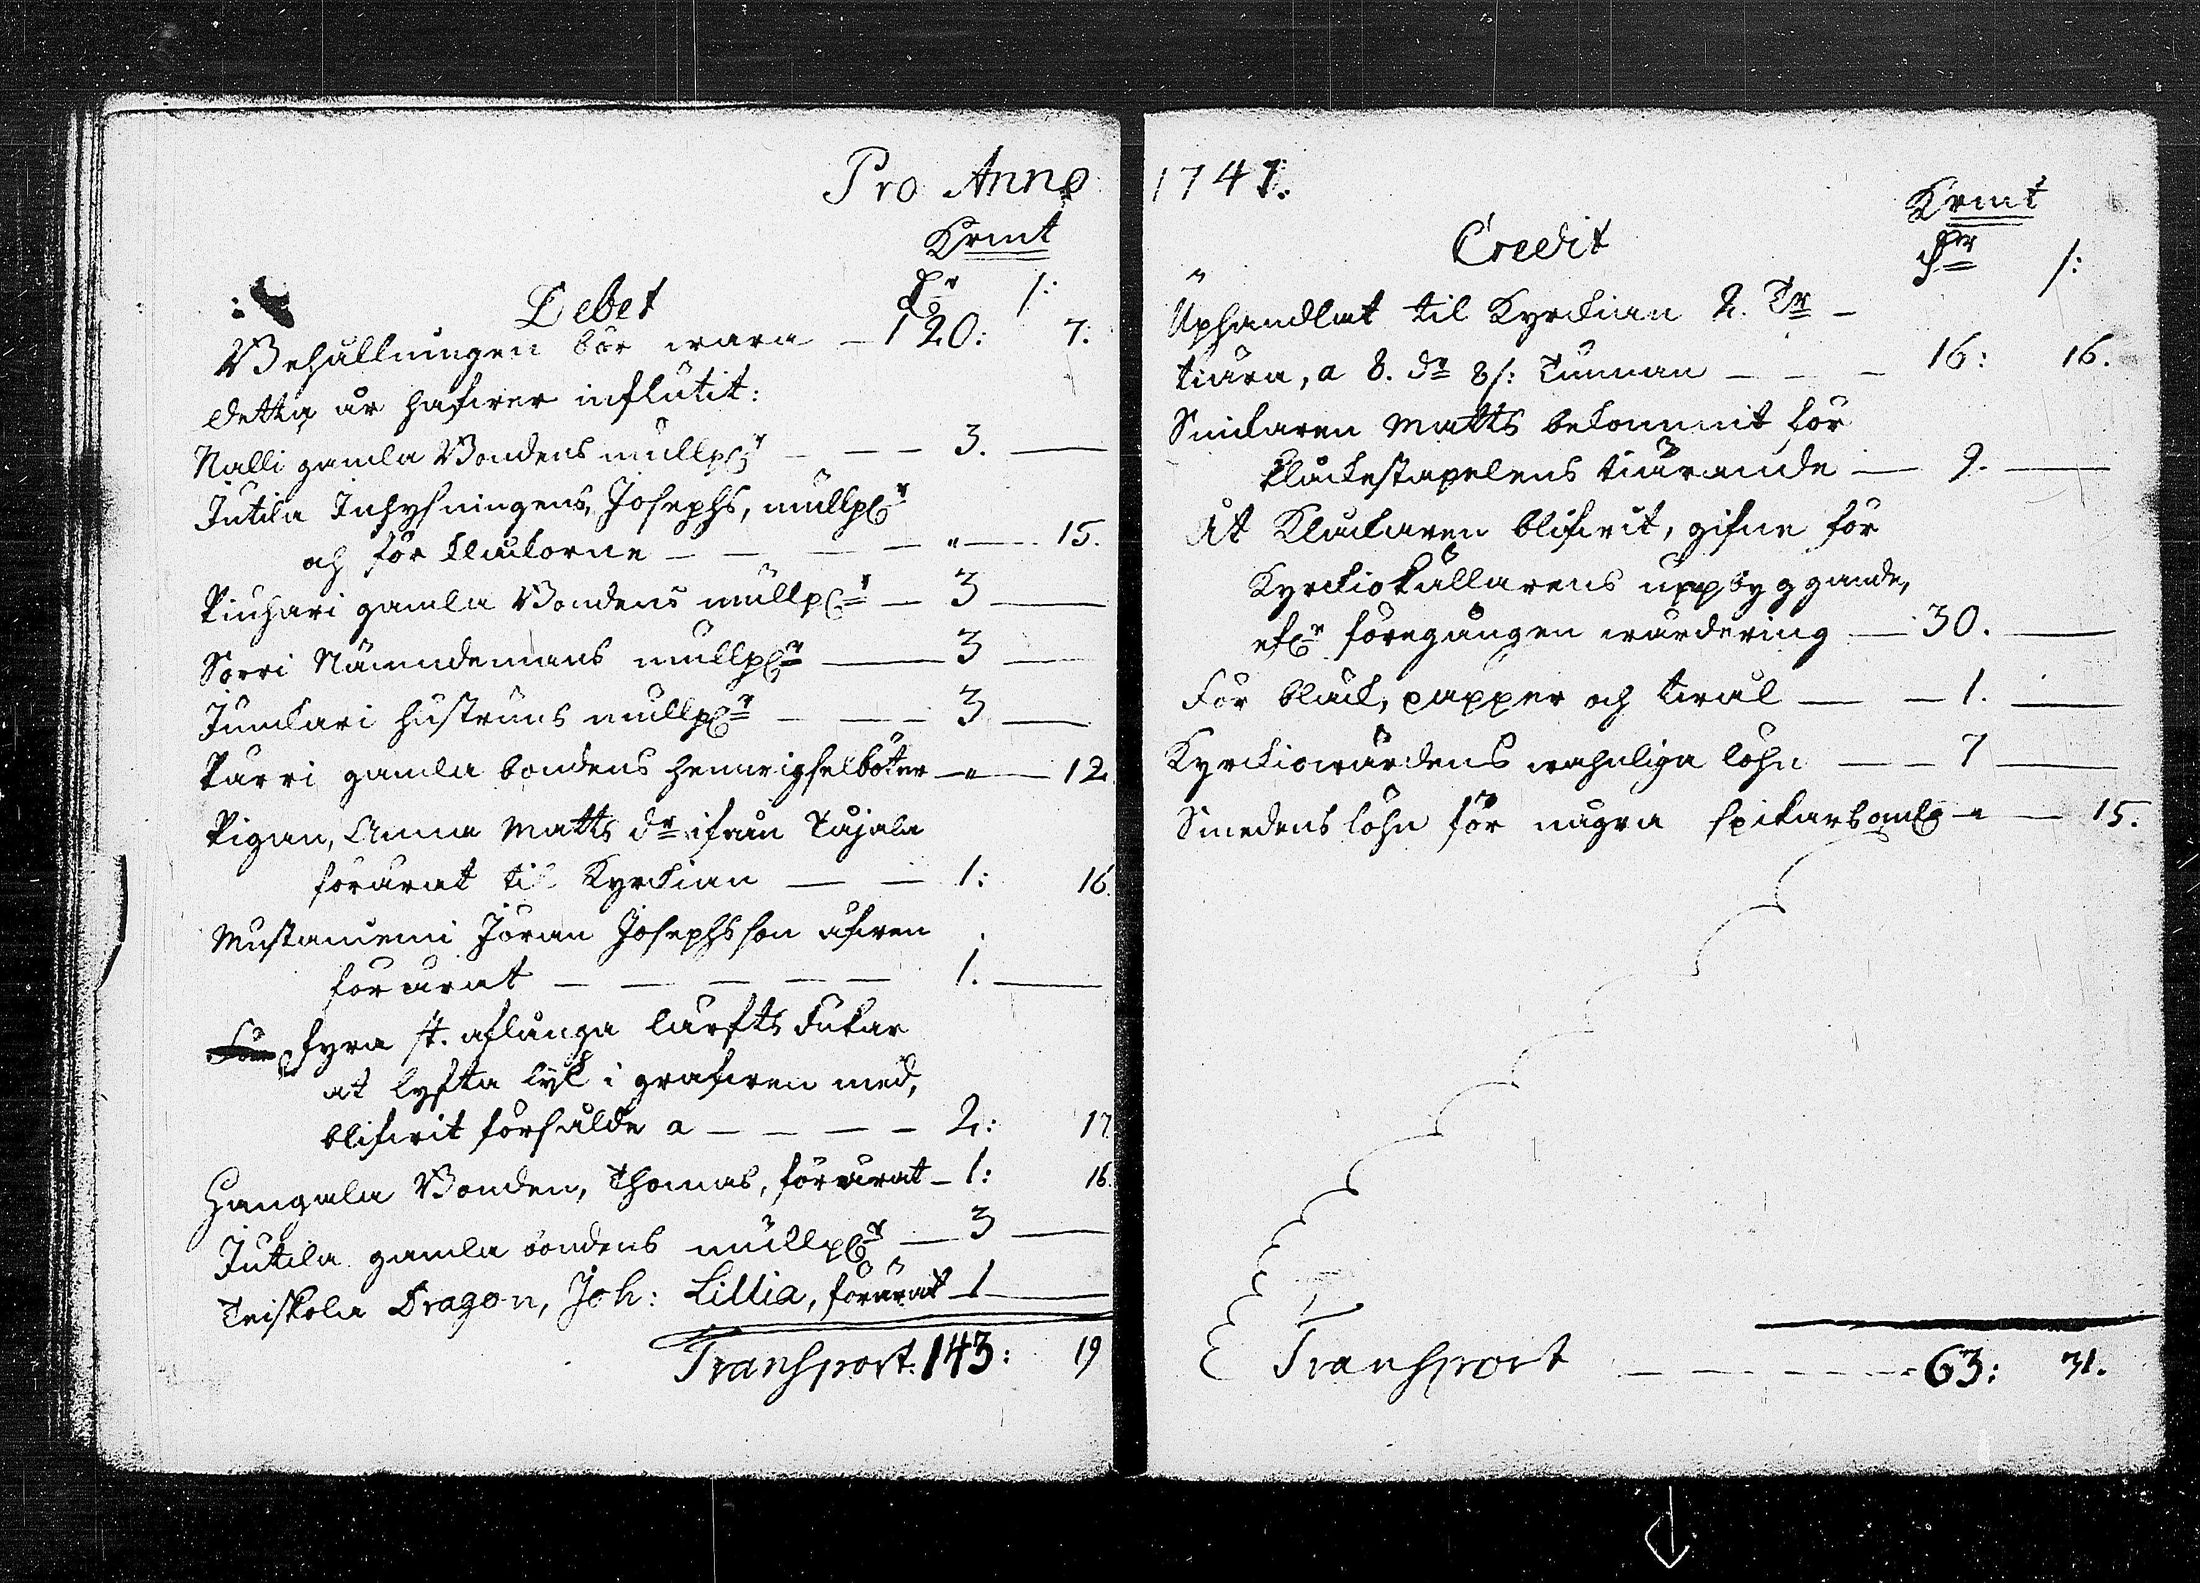 Pro Anno
Krmt
Debet dr /:
Behållningen bör wara — 120: 7:
detta år hafwer influtit:
Nalli gamla Bondens mullpgr — — — 3. —
Jutila Inhysningens, Josephs, mullpgr
och för klockorne — — — — " — 15.
Piuhari gamla Bondens mullpgr — 3 —
Sorri Nämndemans mullpgr — 3 —
Junkari hustruns mullpgr — — — 3 —
Parri gamla bondens hemwigselböter — " — 12.
Pigan, Anna Matts dr ifrån Tajala
förärat til Kyrckian — — 1: 16.
Mustaniemi Jöran Josephsson äfwen
förärat — — — — — 1. —
fyra st. aflånga lärfts dukar
at lyfta lijk i grafwen med,
blifwit försålde a — — — — 2: 17.
Hangala Bonden, Thomas, förärat — 1: 16.
Jutila gamla bondens mullpgr — 3 —
Teiskola Dragon, Joh: Lillia, förärat — 1 —
Transport. 143: 19
1747.
Krmt
Credit dr /:
Uphandlat til Kyrckian 2. Tr —
tiära, a 8. dr 8/: Tunnan — — — 16: 16.
Snickaren Matts bekommit för
klockestapelens tiärande — 9. —
åt Klockaren blifwit, gifne för
Kyrckiokållarens uppbyggande,
efter föregången wärdering — 30. —
För bläck, papper och twål — — 1. —
Kyrckiowärdens wahnliga löhn — — 7 —
Smedens löhn för några spikars — " — 15.
Transport — — — — — 63: 31.